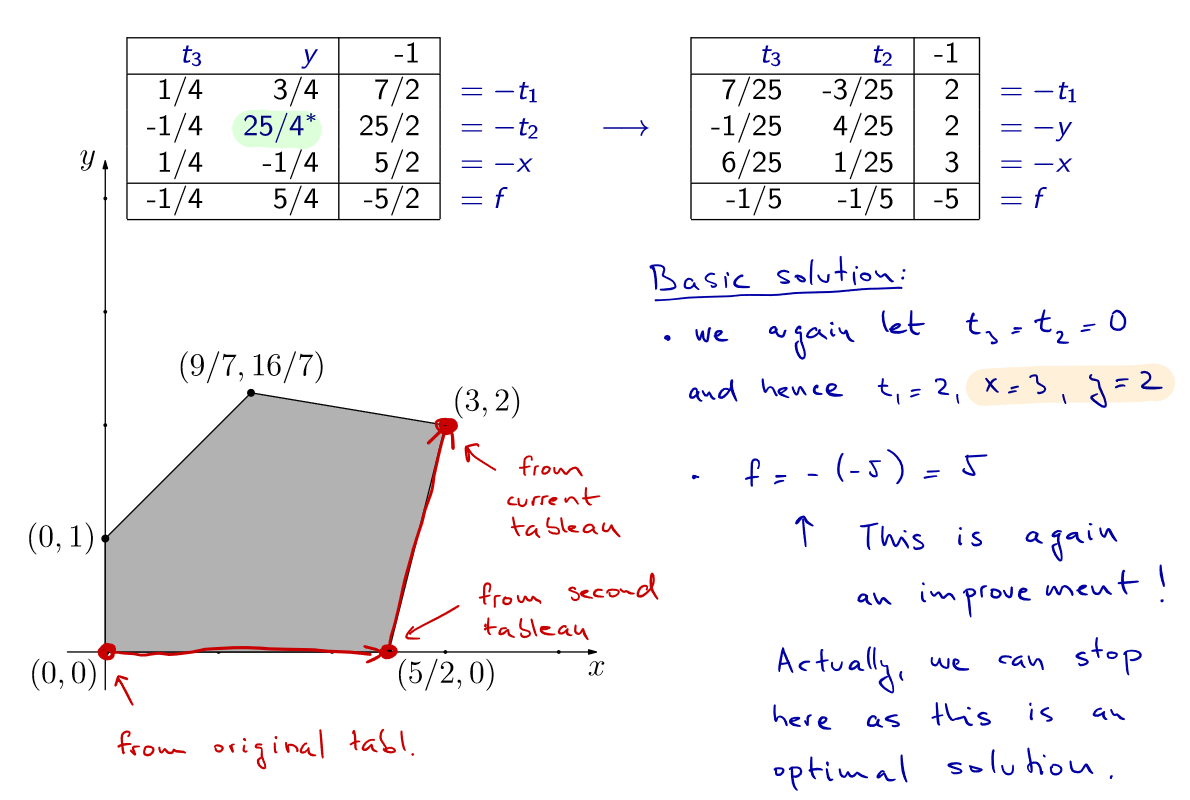 t₃ y -1
1/4 3/4 7/2 = −t₁
-1/4 25/4* 25/2 = −t₂
1/4 -1/4 5/2 = −x
-1/4 5/4 -5/2 = f
⟶
t₃ t₂ -1
7/25 -3/25 2 = −t₁
-1/25 4/25 2 = −y
6/25 1/25 3 = −x
-1/5 -1/5 -5 = f
y
(9/7, 16/7)
(3, 2)
(0, 1)
(0, 0)
(5/2, 0)
x
from
current
tableau
from second
tableau
from original tabl.
Basic solution:
• we again let t₃ = t₂ = 0
and hence t₁ = 2, x = 3, y = 2
• f = - (-5) = 5
↑ This is again
an improvement!
Actually, we can stop
here as this is an
optimal solution.